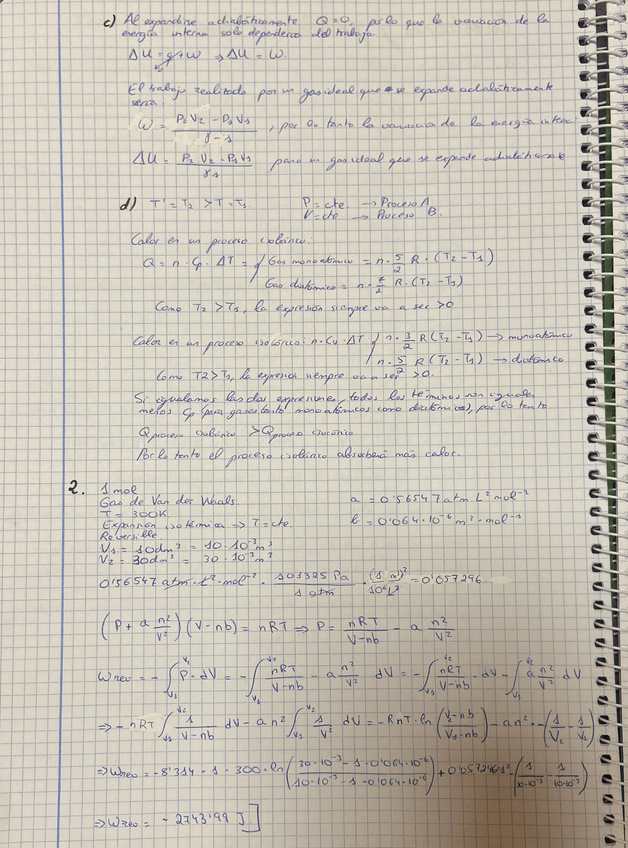 c) Al expandirse adiabáticamente Q=0, por lo que la variación de la
energía interna solo dependerá del trabajo.
ΔU = q+w ⇒ ΔU = W.
El trabajo realizado por un gas ideal que se expande adiabáticamente
sería:
W = (P₂V₂ - P₁V₁)/(γ-1), por lo tanto la variación de la energía interna
ΔU = (P₂V₂ - P₁V₁)/(γ-1) para un gas ideal que se expande adiabáticamente
d) T' = T₂ > T = T₁ P = cte → Proceso A
V = cte → Proceso B.
Calor en un proceso isobárico:
Q = n · Cp · ΔT = { Gas monoatómico = n · 5/2 R · (T₂ - T₁)
Gas diatómico = n · 7/2 R · (T₂ - T₁)
Como T₂ > T₁, la expresión siempre va a ser > 0
Calor en un proceso isocórico: n · Cv · ΔT { n · 3/2 R (T₂ - T₁) → monoatómico
n · 5/2 R (T₂ - T₁) → diatómico
Como T2 > T₁, la expresión siempre va a ser > 0.
Si igualamos las dos expresiones, todos los términos son iguales
menos Cp (para gases tanto monoatómicos como diatómicos), por lo tanto
Q proceso isobárico > Q proceso isocórico.
Por lo tanto el proceso isobárico absorberá más calor.
2. 1 mol
Gas de Van der Waals a = 0'56547 atm L² mol⁻²
T = 300K b = 0'064 · 10⁻⁶ m³ · mol⁻¹
Expansión isotérmica ⇒ T = cte.
Reversible
V₁ = 10dm³ = 10 · 10⁻³ m³
V₂ = 30dm³ = 30 · 10⁻³ m³
0'56547 atm · L² · mol⁻² · 101325 Pa / 1 atm · (1 m³)² / 10⁶ L² = 0'057296
(P + a n²/V²)(V - nb) = nRT ⇒ P = nRT/(V-nb) - a n²/V²
Wrev = - ∫ᵥ₁ᵛ² P · dV = - ∫ᵥ₁ᵛ² nRT/(V-nb) - a n²/V² dV = - ∫ᵥ₁ᵛ² nRT/(V-nb) · dV - ∫ᵥ₁ᵛ² a n²/V² dV
⇒ - nRT ∫ᵥ₁ᵛ² 1/(V-nb) dV - an² ∫ᵥ₁ᵛ² 1/V² dV = -RnT · ln((V₂-nb)/(V₁-nb)) - an² · -(1/V₂ - 1/V₁)
⇒ Wrev = -8'314 · 1 · 300 · ln((30 · 10⁻³ - 1 · 0'064 · 10⁻⁶)/(10 · 10⁻³ - 1 · 0'064 · 10⁻⁶)) + 0'057296 · 1² ·
⇒ Wrev = -2743'99 J]